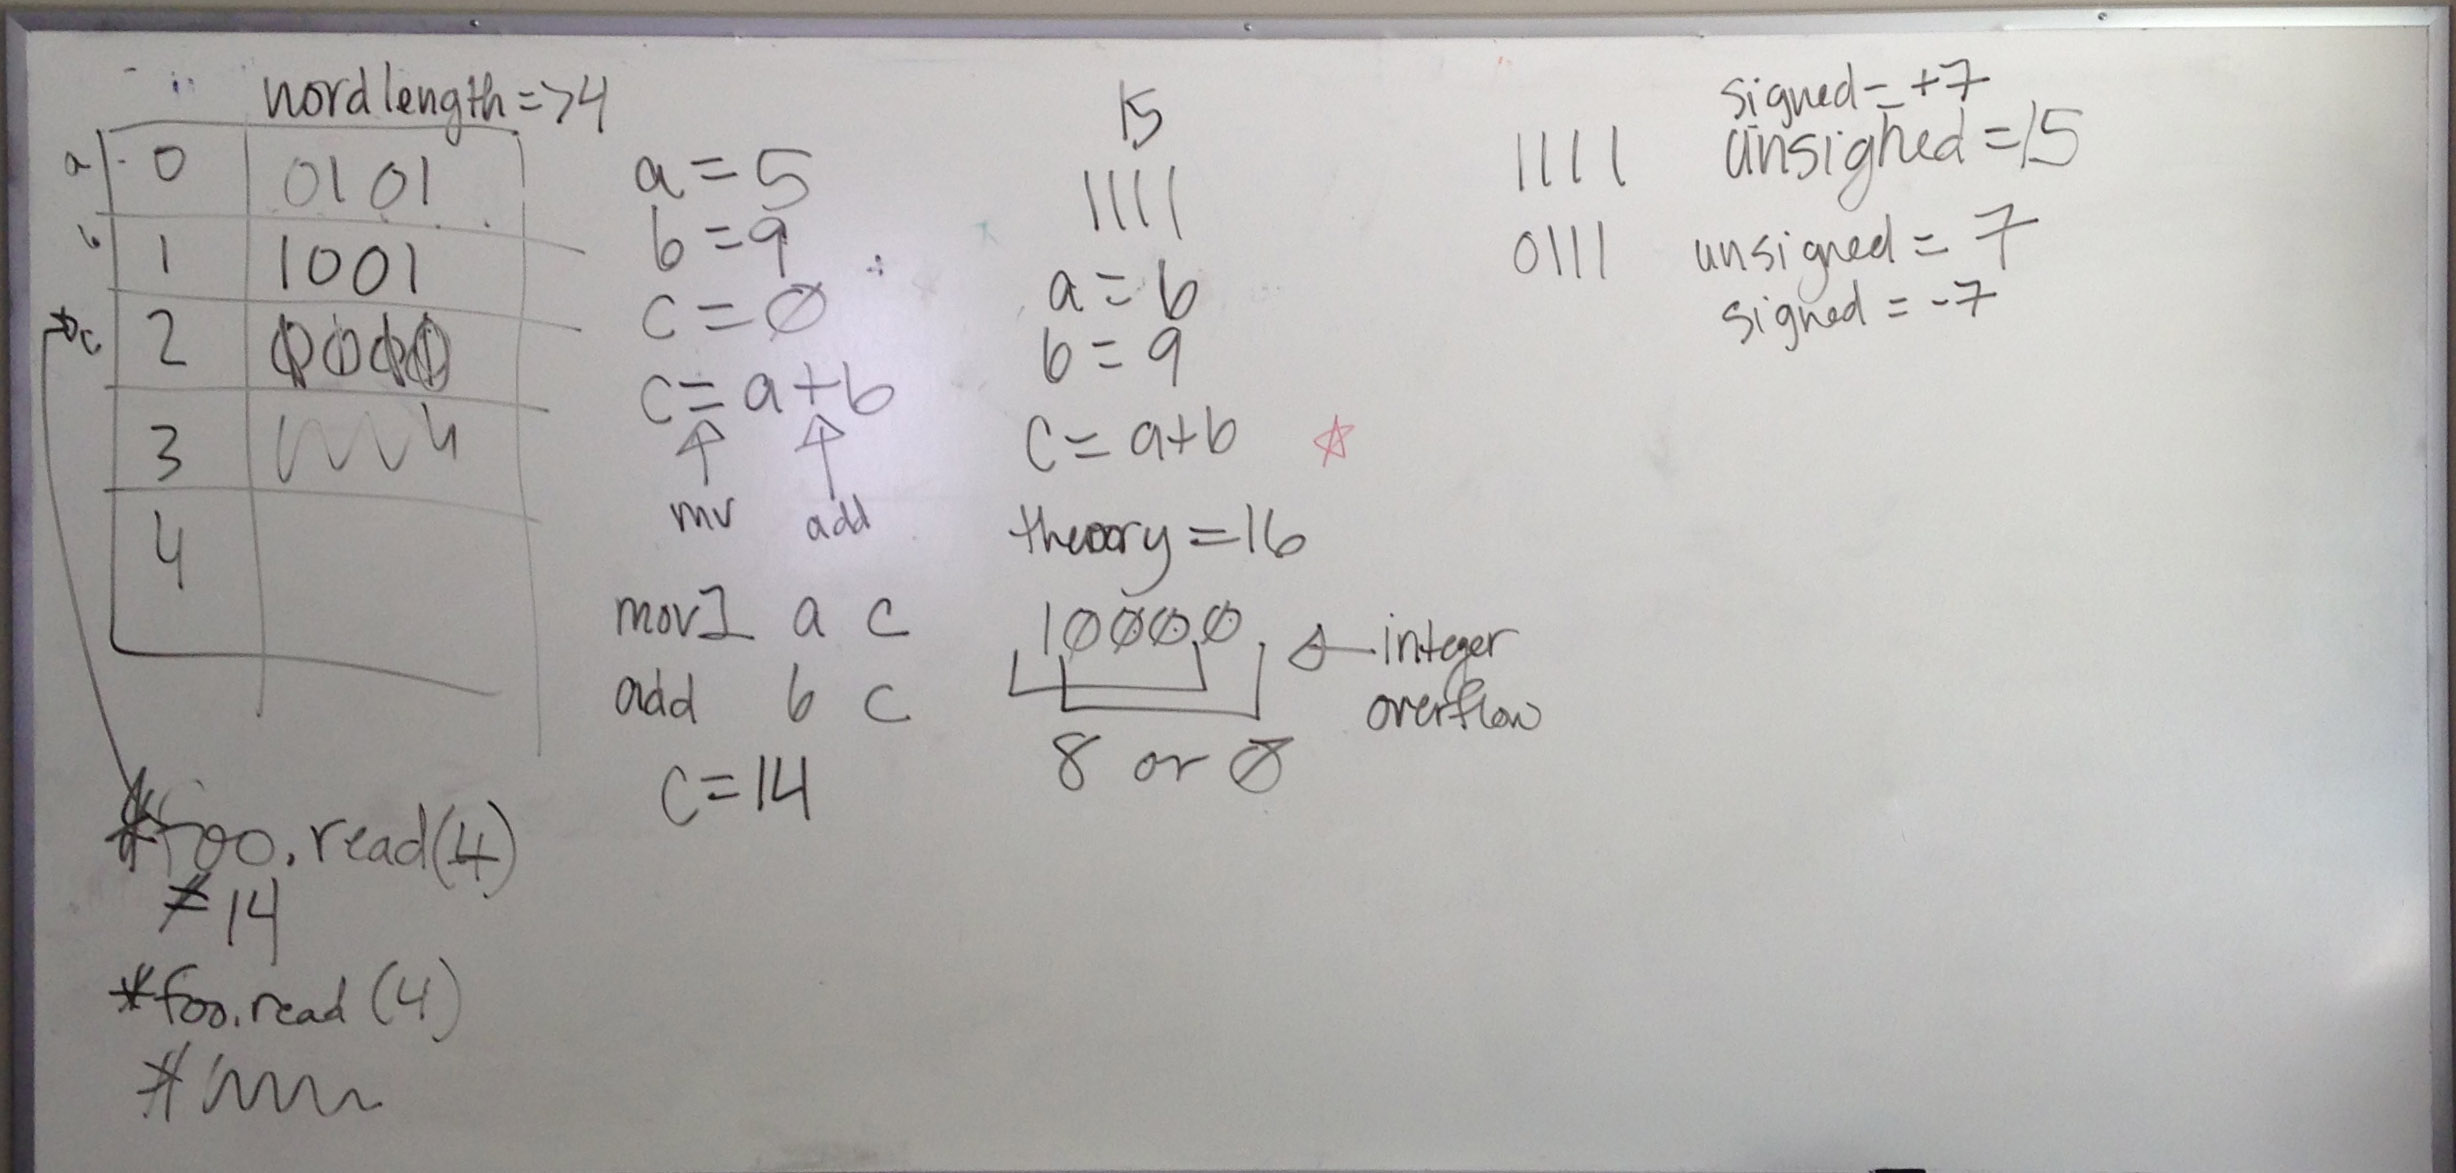 word length => 4
a 0 0101
b 1 1001
c 2
3
4
*foo.read(4)
= 14
*foo.read(4)
#
a = 5
b = 9
c = Ø
c = a + b
mv add
movl a c
add b c
c = 14
15
1111
a = 6
b = 9
c = a + b
theory = 16
1ØØØØ
integer
overflow
8 or Ø
signed = +7
1111 unsigned = 15
0111 unsigned = 7
signed = -7